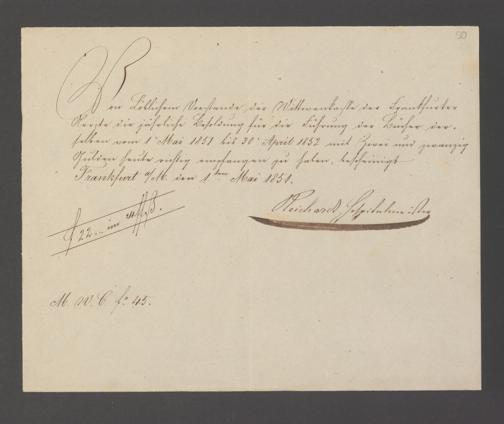 50
Von Löblichem Vorstande der Wittwenkasse der Frankfurter
Aerzte die jährliche Besoldung für die Führung der Bücher der-
selben vom 1 Mai 1851 bis 30 April 1852 mit Zwei und zwanzig
Gulden heute richtig empfangen zu haben, bescheinigt
Frankfurt a/M. den 1ten Mai 1851.
Reichard Hospitalmeister
f 22.- im
M. W. C. fo 45.